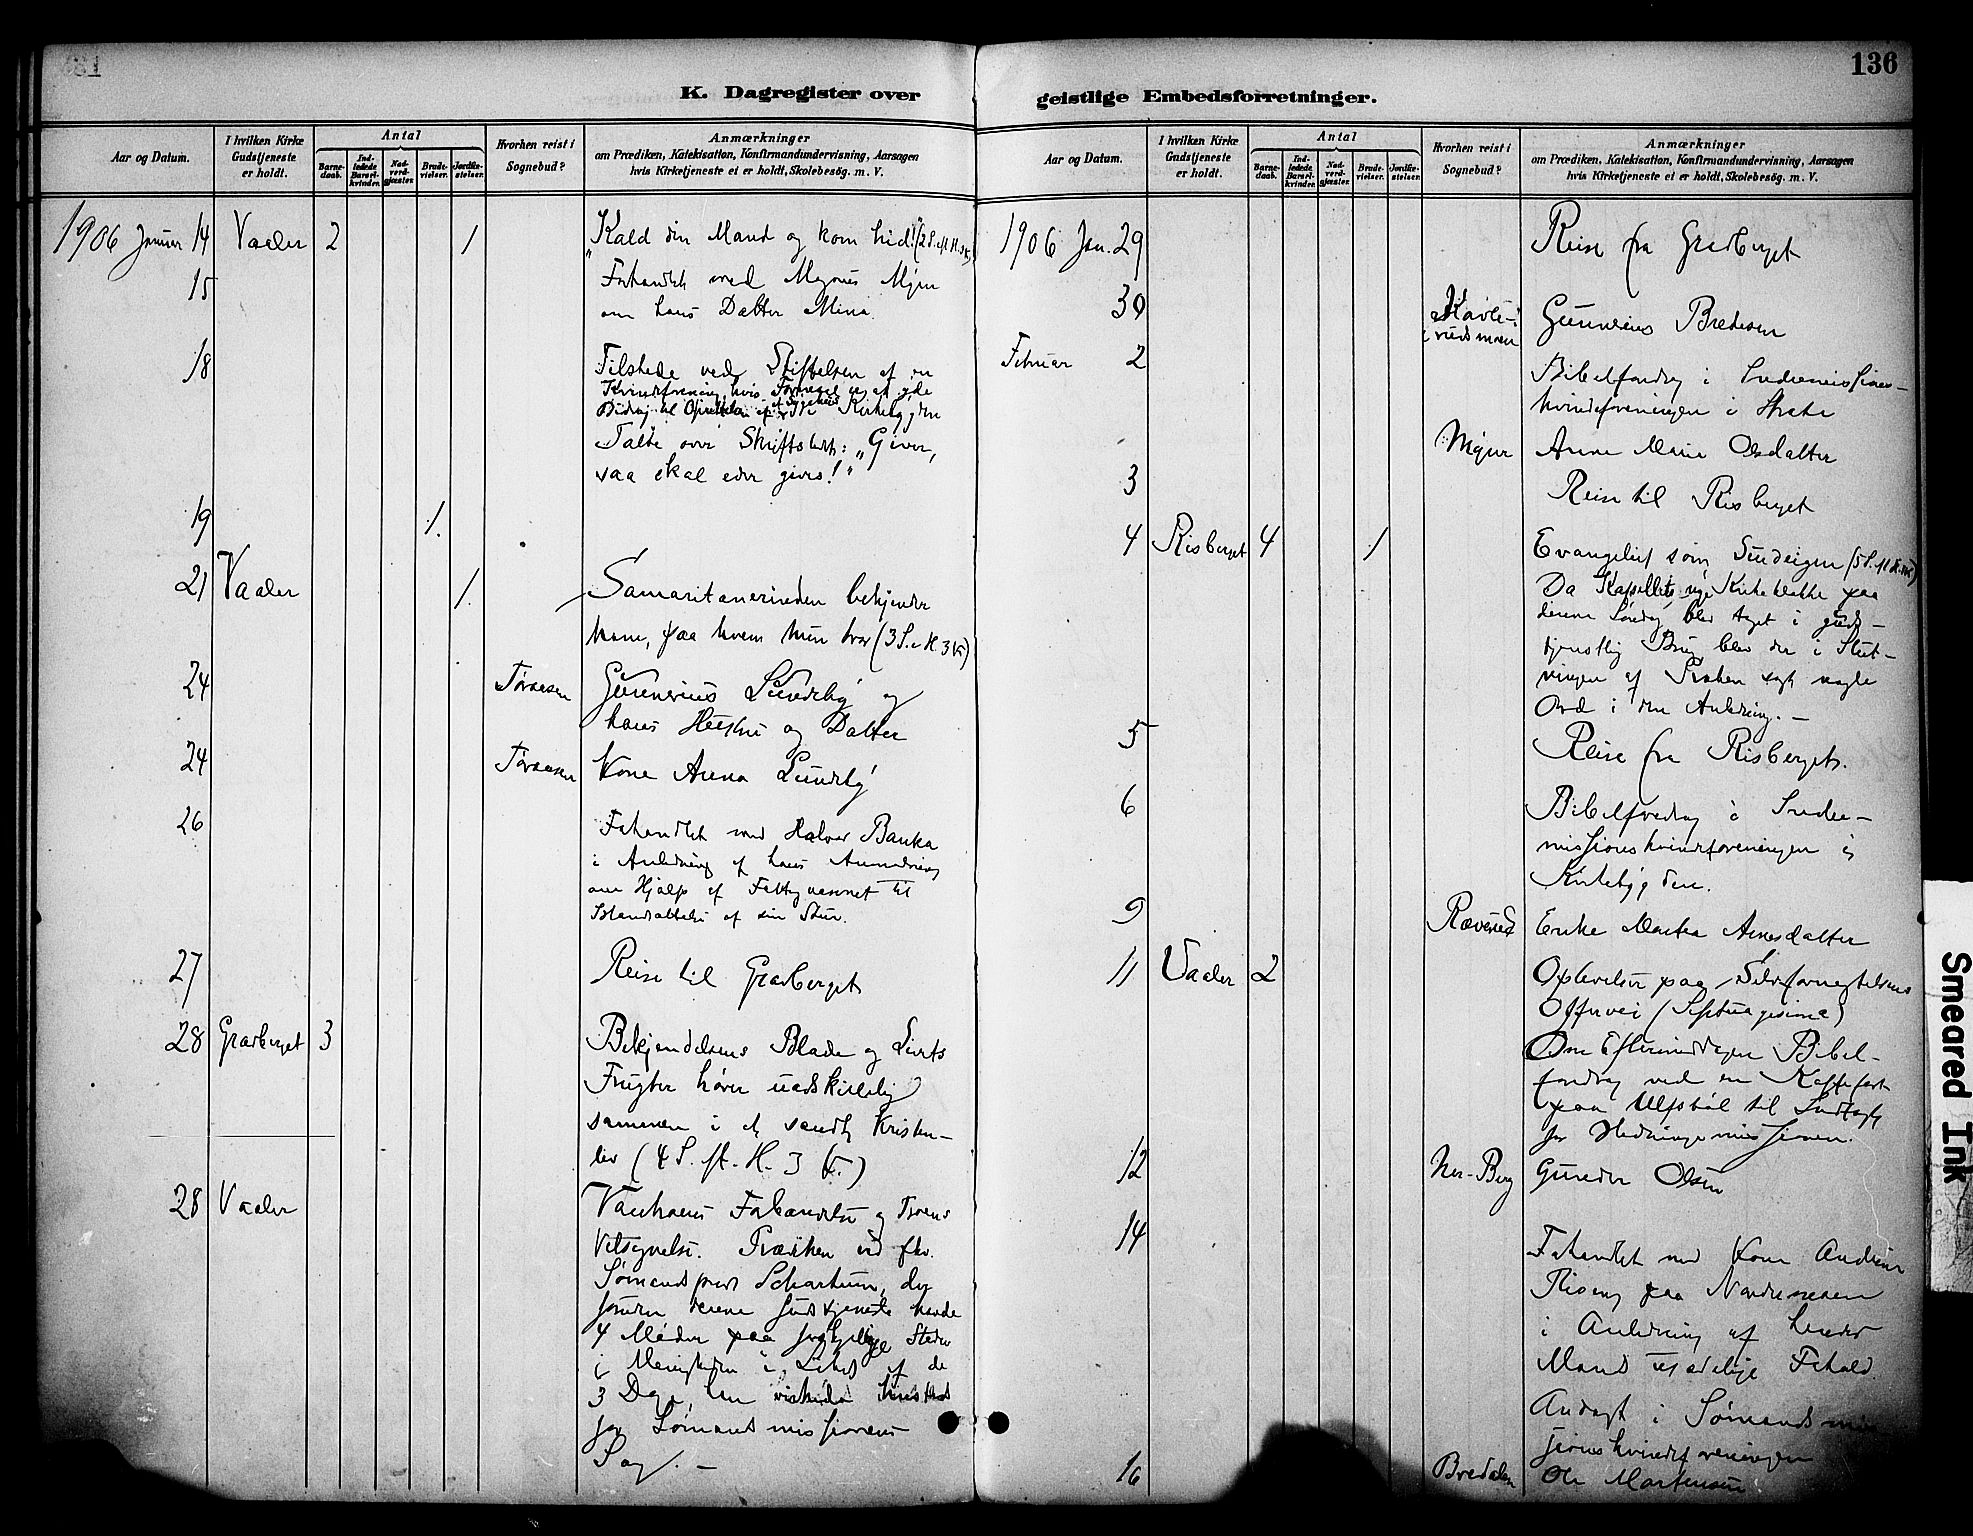 136
K. Dagregister over
geistlige Embedsforretninger.
Aar og Datum.
I hvilken Kirke Gudstjeneste er holdt.
Antal
Barne-daab.
Ind-ledede Barsel-kvinder.
Nad-verd-gjæster.
Brude-vielser.
Jordfæ-stelser.
Hvorhen reist i Sognebud?
Anmærkninger
om Prædiken, Katekisation, Konfirmandundervisning, Aarsagen
hvis Kirketjeneste ei er holdt, Skolebesøg. m. V.
1906 Januar 14 Vaaler 2 1 "Kald din Mand og kom hid!" (2 S. e. H. 3 K.)
15 Forhandlet med Magnus Mjør
om hans Datter Mina.
18 Tilstede ved Stiftelsen af en
Kvindeforening, hvis Formaal er at yde
Bidrag til Oprettelse af et Sygehus i Kirkebygden
Talte over Skriftordet: "Giver,
saa skal eder gives!"
19 1.
21 Vaaler 1. Samaritanerinden bekjender
ham, paa hvem hun tror (3 S. e. H. 3 K.)
24 Gunnerius Lundeby og
hans Hustru og Datter
24 Kone Anna Lundeby
26 Forhandlet med Halvor Banka
i Anledning af hans Anmodning
om Hjælp af Fattigvæsenet til
Istandsættelse af sin Stue.
27 Reise til Gravberget
28 Gravberget 3 Bekjendelsens Blade og Livets
Frugter hører uadskillelig
sammen i et sandt Kristen-
liv (4 S. e. H. 3 K.)
28 Vaaler Vantroens Forbandelse og Troens
Velsignelse. Prædiken ved fhv.
Sømandsprest Schartum, der
foruden denne Gudstjeneste havde
4 Møder paa forskjellige Steder
i Menigheden i Løbet af de
3 Dage, han virkede
for Sømandsmissionens
Sag. –
Aar og Datum.
I hvilken Kirke Gudstjeneste er holdt.
Antal
Barne-daab.
Ind-ledede Barsel-kvinder.
Nad-verd-gjæster.
Brude-vielser.
Jordfæ-stelser.
Hvorhen reist i Sognebud?
Anmærkninger
om Prædiken, Katekisation, Konfirmandundervisning, Aarsagen
hvis Kirketjeneste ei er holdt, Skolebesøg. m. V.
1906 Jan. 29 Reise fra Gravberget
30 Gunnerius Bredesen
Februar 2 Bibelforedrag i Indremissions-
kvindeforeningen i
Mjør Anne Marie Olsdatter
3 Reise til Risberget
4 Risberget 4 1 Evangeliet som (5 S. e. H. 3 K.)
Da Kapellets nye Kirkeklokke paa
denne Søndag blev taget i guds-
tjenstlig Brug blev der i Slut-
ningen af Præken sagt nogle
Ord i den Anledning. –
5 Reise fra Risberget.
6 Bibelforedrag i Indre-
missionskvindeforeningen i
Kirkebygden.
9 Ræverud Enke Marthea Arnesdatter
11 Vaaler 2 Oplevelser paa Selvfornegtelsens
Offervei (Septuagesima)
Om Eftermiddagen Bibel-
foredrag ved en Kaffefest
paa Ulfsbøl til Indtægt
for Hedningemissionen.
12 Ner-Berg Gunder Olsen
14 Forhandlet med Kone Andrine
Risberg paa Nordre
i Anledning af hendes
Mands usædelige Forhold.
Andagt i Sømandsmis
sionskvindeforeningen
16 Bredalen Ole Mortensen
Smeared Ink